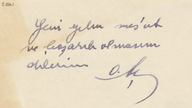 Yeni yılın neş'eli
ve başarılı olmasını
dilerim